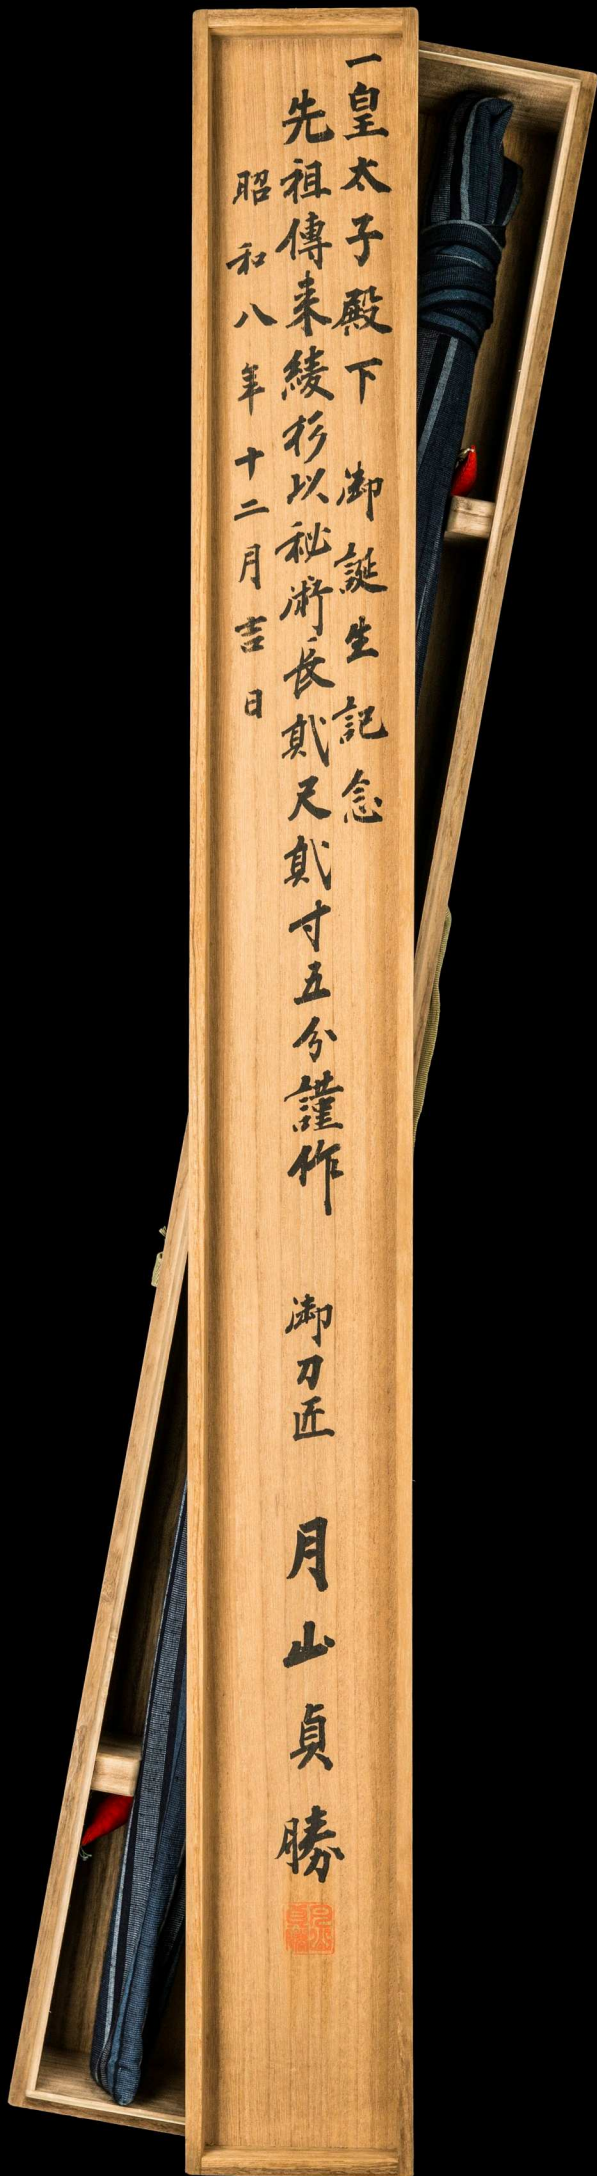 一皇太子殿下 御誕生記念
先祖傳来綾杉以秘術長貮尺貮寸五分謹作 御刀匠 月山貞勝
昭和八年十二月吉日